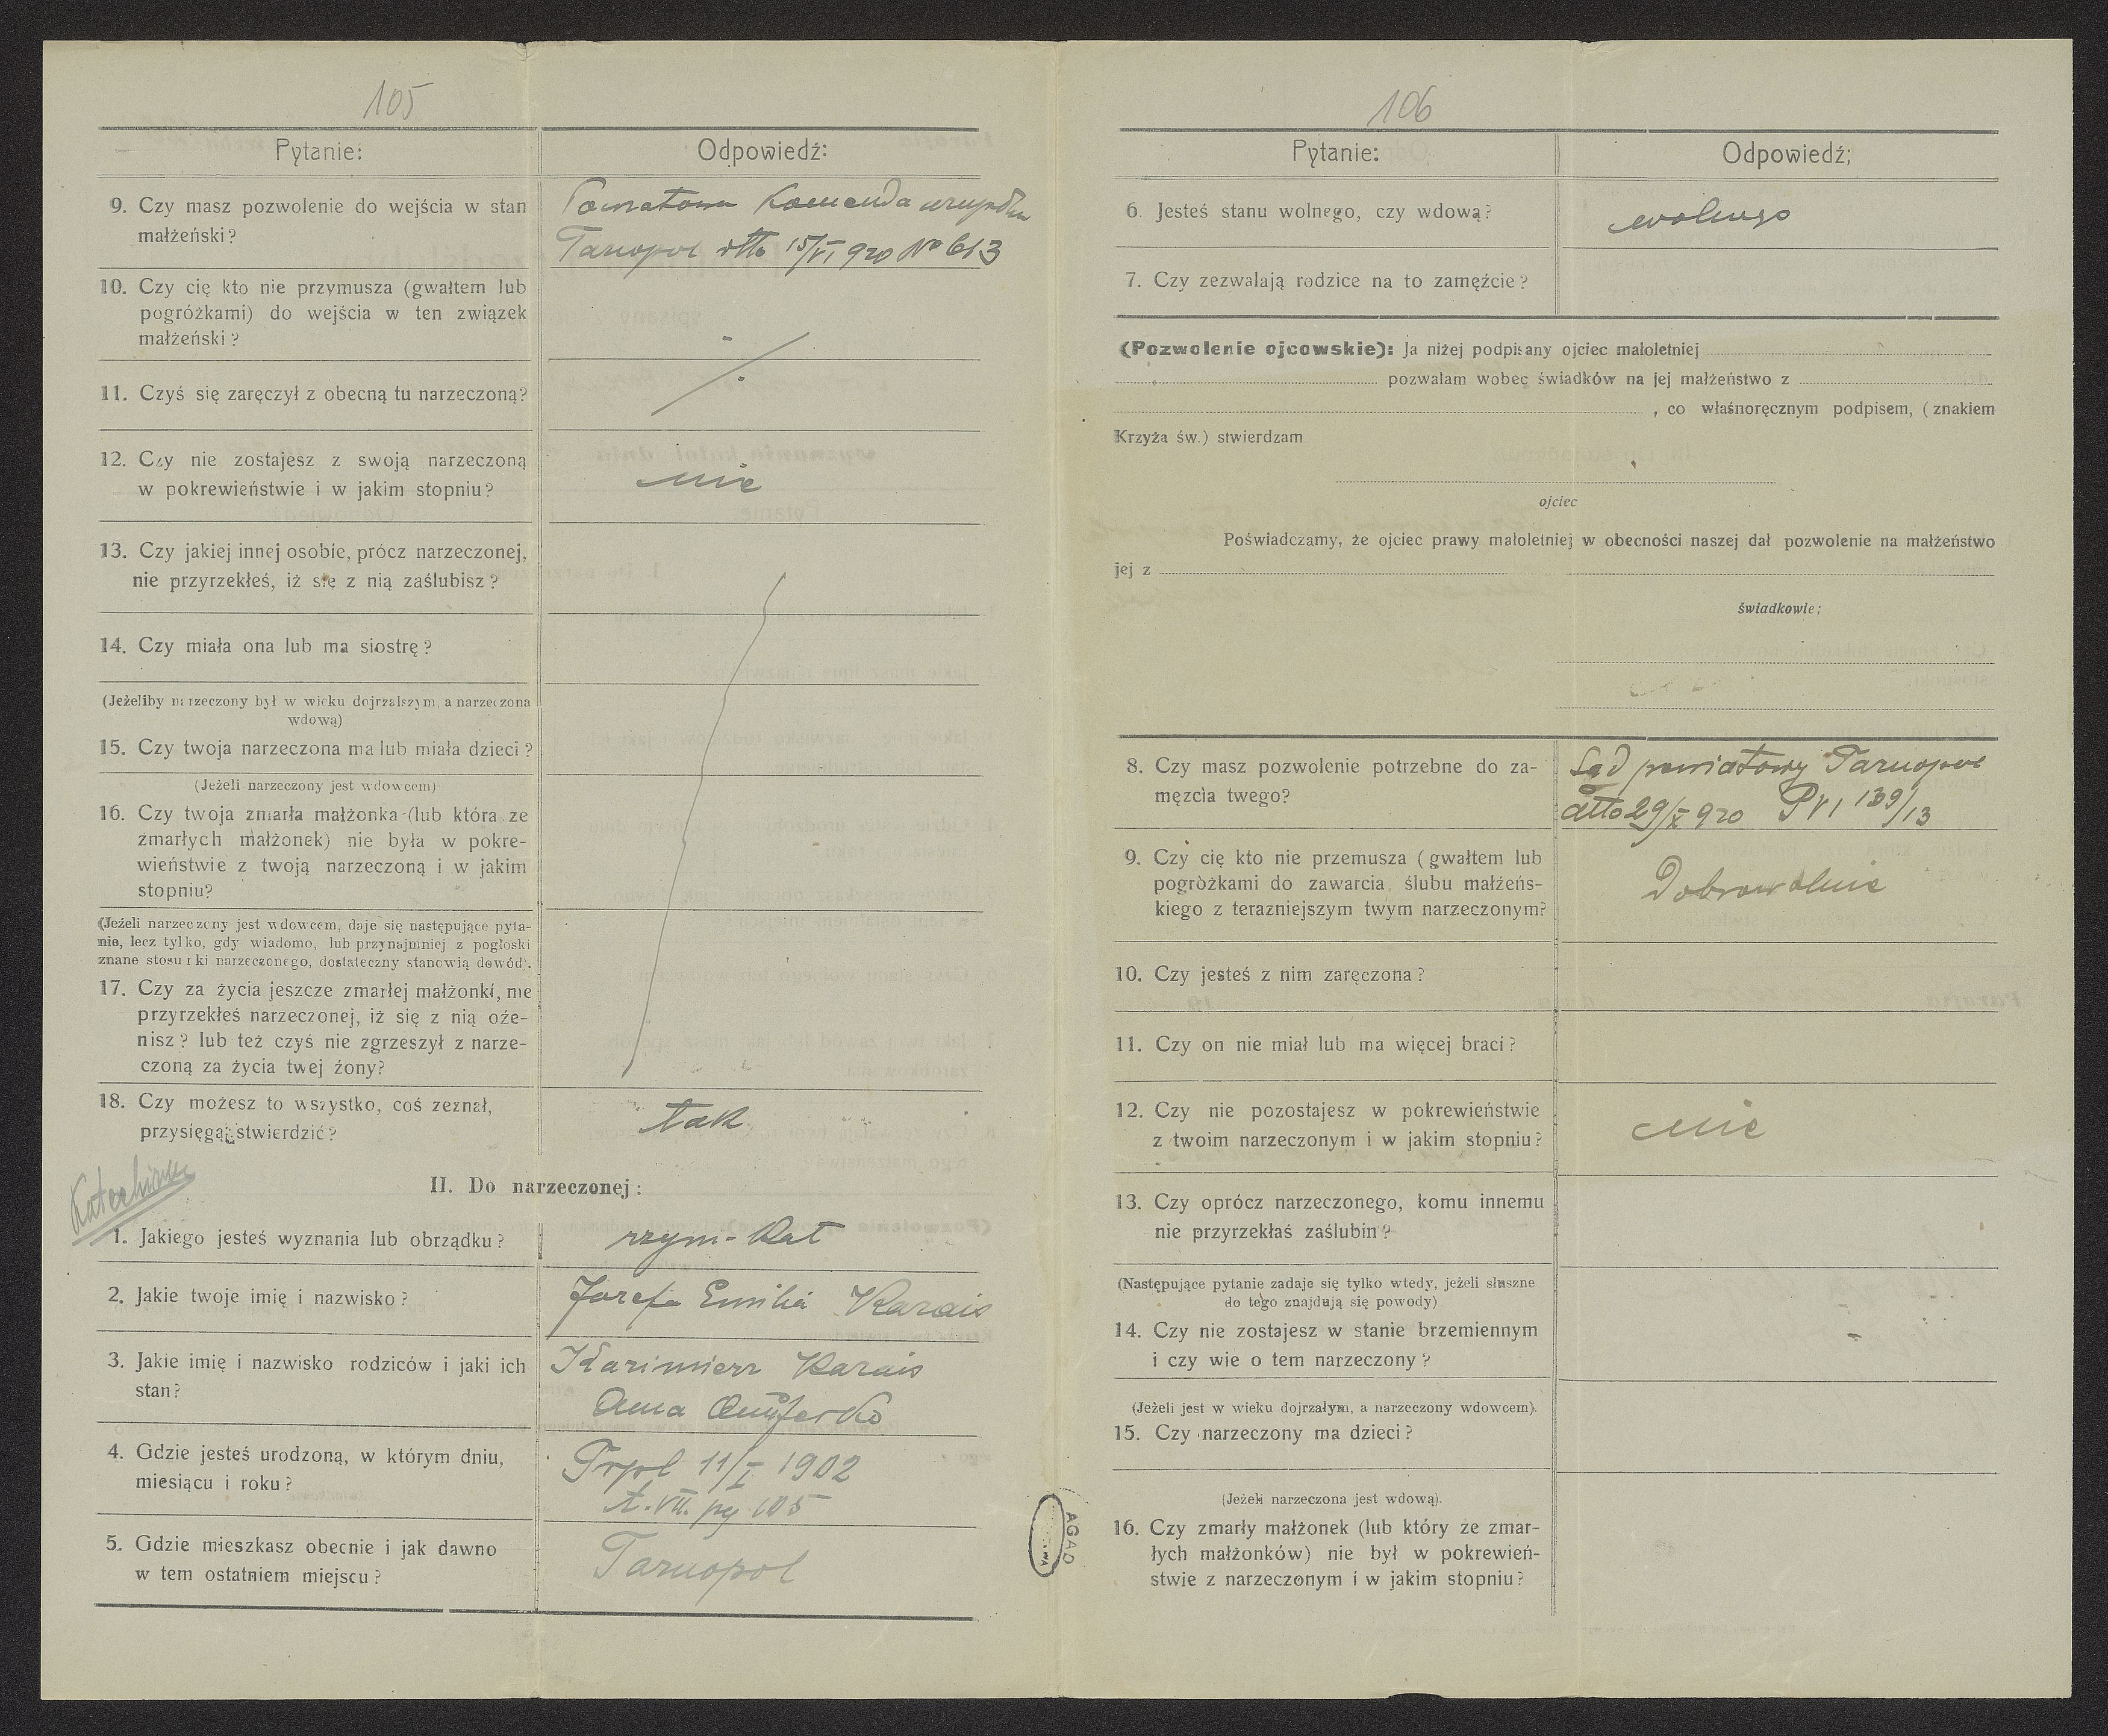 105
Pytanie:
Odpowiedź:
9. Czy masz pozwolenie do wejścia w stan
małżeński?
Powiatowa Komenda
Tarnopol dtto 15/VI 920 No 613
10. Czy cię kto nie przymusza (gwałtem lub
pogróżkami) do wejścia w ten związek
małżeński?
11. Czyś się zaręczył z obecną tu narzeczoną?
12. Czy nie zostajesz z swoją narzeczoną
w pokrewieństwie i w jakim stopniu?
nie
13. Czy jakiej innej osobie, prócz narzeczonej,
nie przyrzekłeś, iż się z nią zaślubisz?
14. Czy miała ona lub ma siostrę?
(Jeżeliby narzeczony był w wieku dojrzalszym, a narzeczona
wdową)
15. Czy twoja narzeczona ma lub miała dzieci?
(Jeżeli narzeczony jest wdowcem)
16. Czy twoja zmarła małżonka (lub która ze
zmarłych małżonek) nie była w pokre-
wieństwie z twoją narzeczoną i w jakim
stopniu?
(Jeżeli narzeczony jest wdowcem, daje się następujące pyta-
nie, lecz tylko, gdy wiadomo, lub przynajmniej z pogłoski
znane stosunki narzeczonego, dostateczny stanowią dowód).
17. Czy za życia jeszcze zmarłej małżonki, nie
przyrzekłeś narzeczonej, iż się z nią oże-
nisz? lub też czyś nie zgrzeszył z narze-
czoną za życia twej żony?
18. Czy możesz to wszystko, coś zeznał,
przysięgą stwierdzić?
tak
Katechizm
II. Do narzeczonej:
1. Jakiego jesteś wyznania lub obrządku?
rzym-kat
2. Jakie twoje imię i nazwisko?
Jozefa Emilia Karais
3. Jakie imię i nazwisko rodziców i jaki ich
stan?
Kazimierz Karais
Anna
4. Gdzie jesteś urodzoną, w którym dniu,
miesiącu i roku?
Trpl 11/I 1902
t. VII. pg 105
5. Gdzie mieszkasz obecnie i jak dawno
w tem ostatniem miejscu?
Tarnopol
AGAD
106
Pytanie:
Odpowiedź;
6. Jesteś stanu wolnego, czy wdową?
wolnego
7. Czy zezwalają rodzice na to zamęźcie?
(Pozwolenie ojcowskie): Ja niżej podpisany ojciec małoletniej
pozwalam wobec świadków na jej małżeństwo z
, co własnoręcznym podpisem, (znakiem
Krzyża św.) stwierdzam
ojciec
Poświadczamy, że ojciec prawy małoletniej w obecności naszej dał pozwolenie na małżeństwo
jej z
świadkowie;
8. Czy masz pozwolenie potrzebne do za-
męzcia twego?
Sąd powiatowy Tarnopol
dtto 29/X 920 P VI 139/13
9. Czy cię kto nie przemusza (gwałtem lub
pogròżkami do zawarcia ślubu małżeńs-
kiego z terazniejszym twym narzeczonym?
Dobrowolnie
10. Czy jesteś z nim zaręczona?
11. Czy on nie miał lub ma więcej braci?
12. Czy nie pozostajesz w pokrewieństwie
z twoim narzeczonym i w jakim stopniu?
nie
13. Czy oprócz narzeczonego, komu innemu
nie przyrzekłaś zaślubin?
(Następujące pytanie zadaje się tylko wtedy, jeżeli słuszne
do tego znajdują się powody)
14. Czy nie zostajesz w stanie brzemiennym
i czy wie o tem narzeczony?
-
(Jeżeli jest w wieku dojrzałym, a narzeczony wdowcem).
15. Czy narzeczony ma dzieci?
(Jeżeli narzeczona jest wdową).
16. Czy zmarły małżonek (lub który ze zmar-
łych małżonków) nie był w pokrewień-
stwie z narzeczonym i w jakim stopniu?